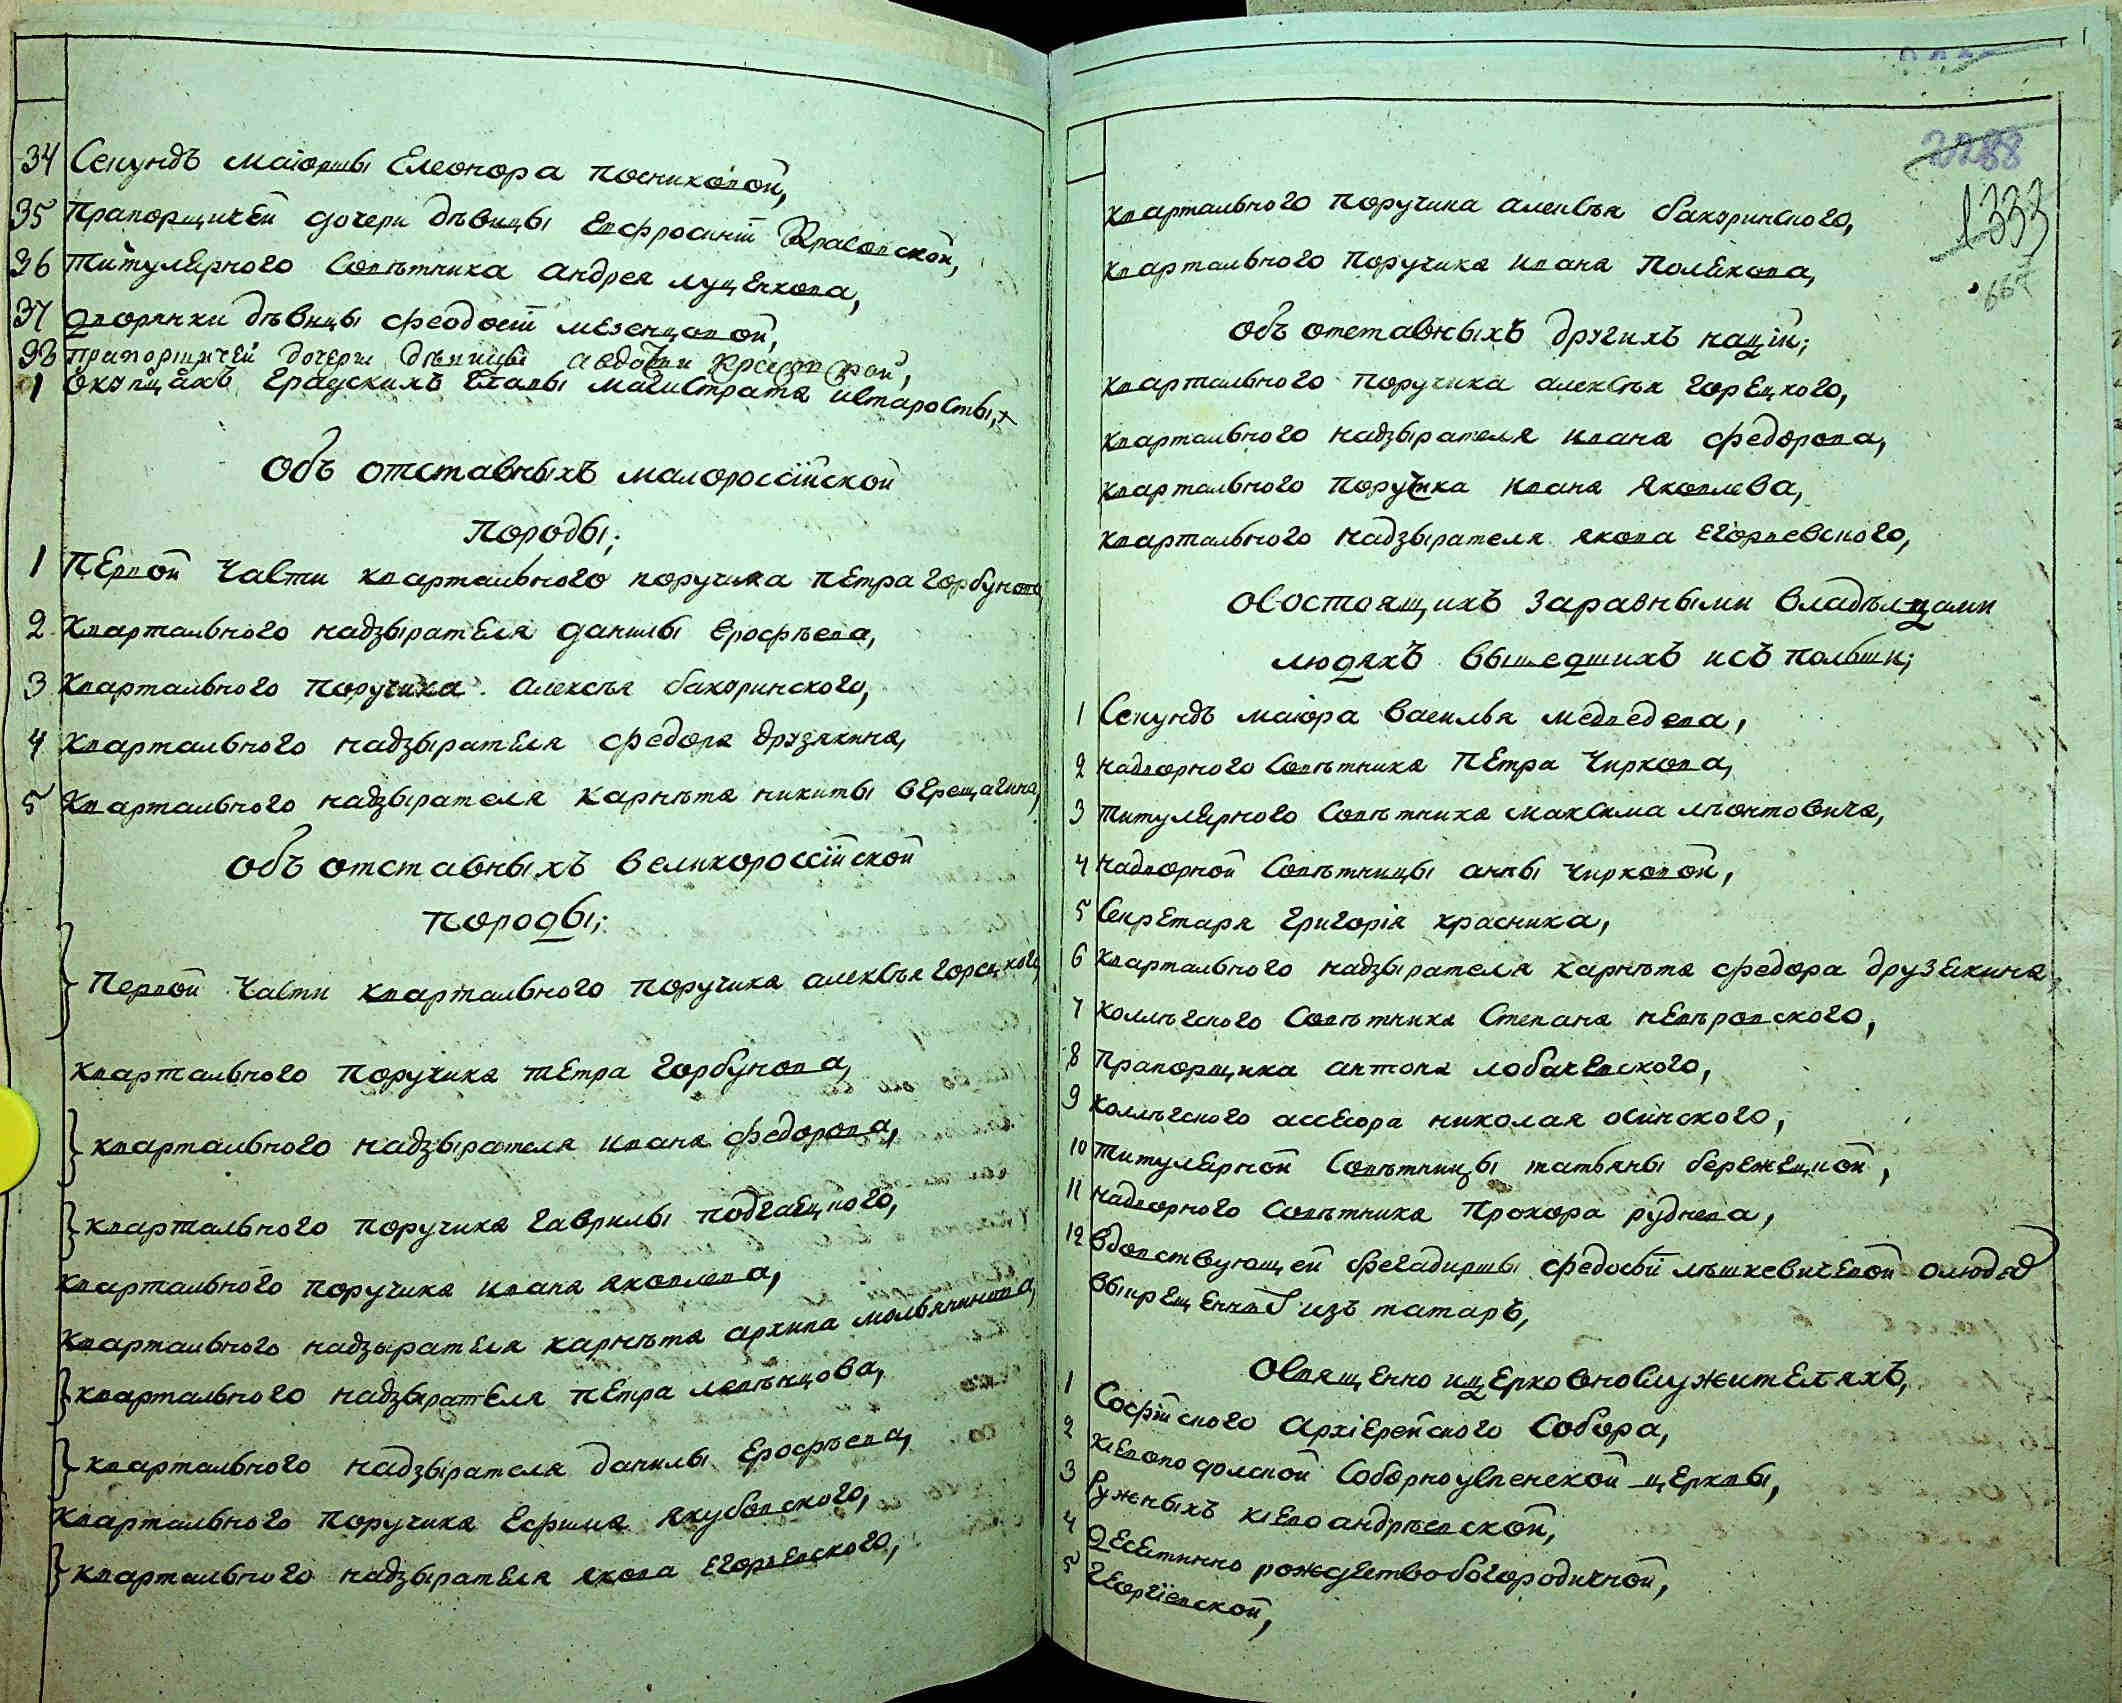 34 Секундъ маіоршы Елеонора посниковой,
35 Прапорщичей дочери дѣвицы Евфросиніи Красовской,
36 Титулярного Совѣтника андрея луценкова,
37 дворянки дѣвицы феодосіи мезенцовой,
38 прапорщичей дочери дѣвицы авдотьи
1 Окупцахъ градскихъ главы магистрата истаросты,
Объ отставныхъ малороссійской
породы;
1 Первой части квартального поручика петра горбунова
2 Квартального надзырателя данилы Ерофѣева,
3 Квартального поручика алексѣя бакоринского,
4 Квартального надзырателя федора друзякина,
5 Квартального надзырателя карнѣта никиты верещагина,
Объ отставныхъ великороссійской
породы;
Первой части квартального поручика алексѣя горецкого,
квартального поручика петра горбунова,
квартального надзырателя ивана федорова,
квартального поручика гаврилы подгаецкого,
квартального поручика ивана яковлева,
квартального надзырателя карнѣта архипа молвянинова,
квартального надзырателя петра левѣнцова,
квартального надзырателя данилы Ерофѣева,
квартального поручика Ефима якубовского,
квартального надзырателя якова егорьевского,
2288
1333
667
квартального поручика алексѣя бакоринского,
квартального поручика ивана полякова,
объ отставныхъ другихъ націй;
квартального поручика алексѣя горецкого,
квартального надзырателя ивана федорова,
квартального поручика ивана яковлева,
квартального надзырателя якова егорьевского,
осостоящихъ заравными владѣлцами
людяхъ вышедшихъ исъ польши;
1 Секундъ маіора василья медведева,
2 надворного Совѣтника Петра Чиркова,
3 титулярного Совѣтника максима леонтовича,
4 надворной Совѣтницы анны чирковой,
5 Секретаря григорія красника,
6 квартального надзырателя карнѣта федора друзякина
7 коллѣгского Совѣтника Степана неверовского,
8 прапорщика антона лобачевского,
9 коллѣгского ассесора николая осинского,
10 титулярной Совѣтницы татьяны бережецкой,
11 надворного Совѣтника Прохора руднева,
12 вдовствующей бригадирши федосьи лѣшкевичевой олюдях
выкрещенныхъ изъ татаръ,
Освященно ицерковнослужителяхъ,
1 Софійского Архіерейского Собора,
2 кіевоподолской Соборноуспенской церквы,
3 Ружныхъ кіево андрѣевской,
4 десетинно рождествобогородичной,
5 георгіевской,